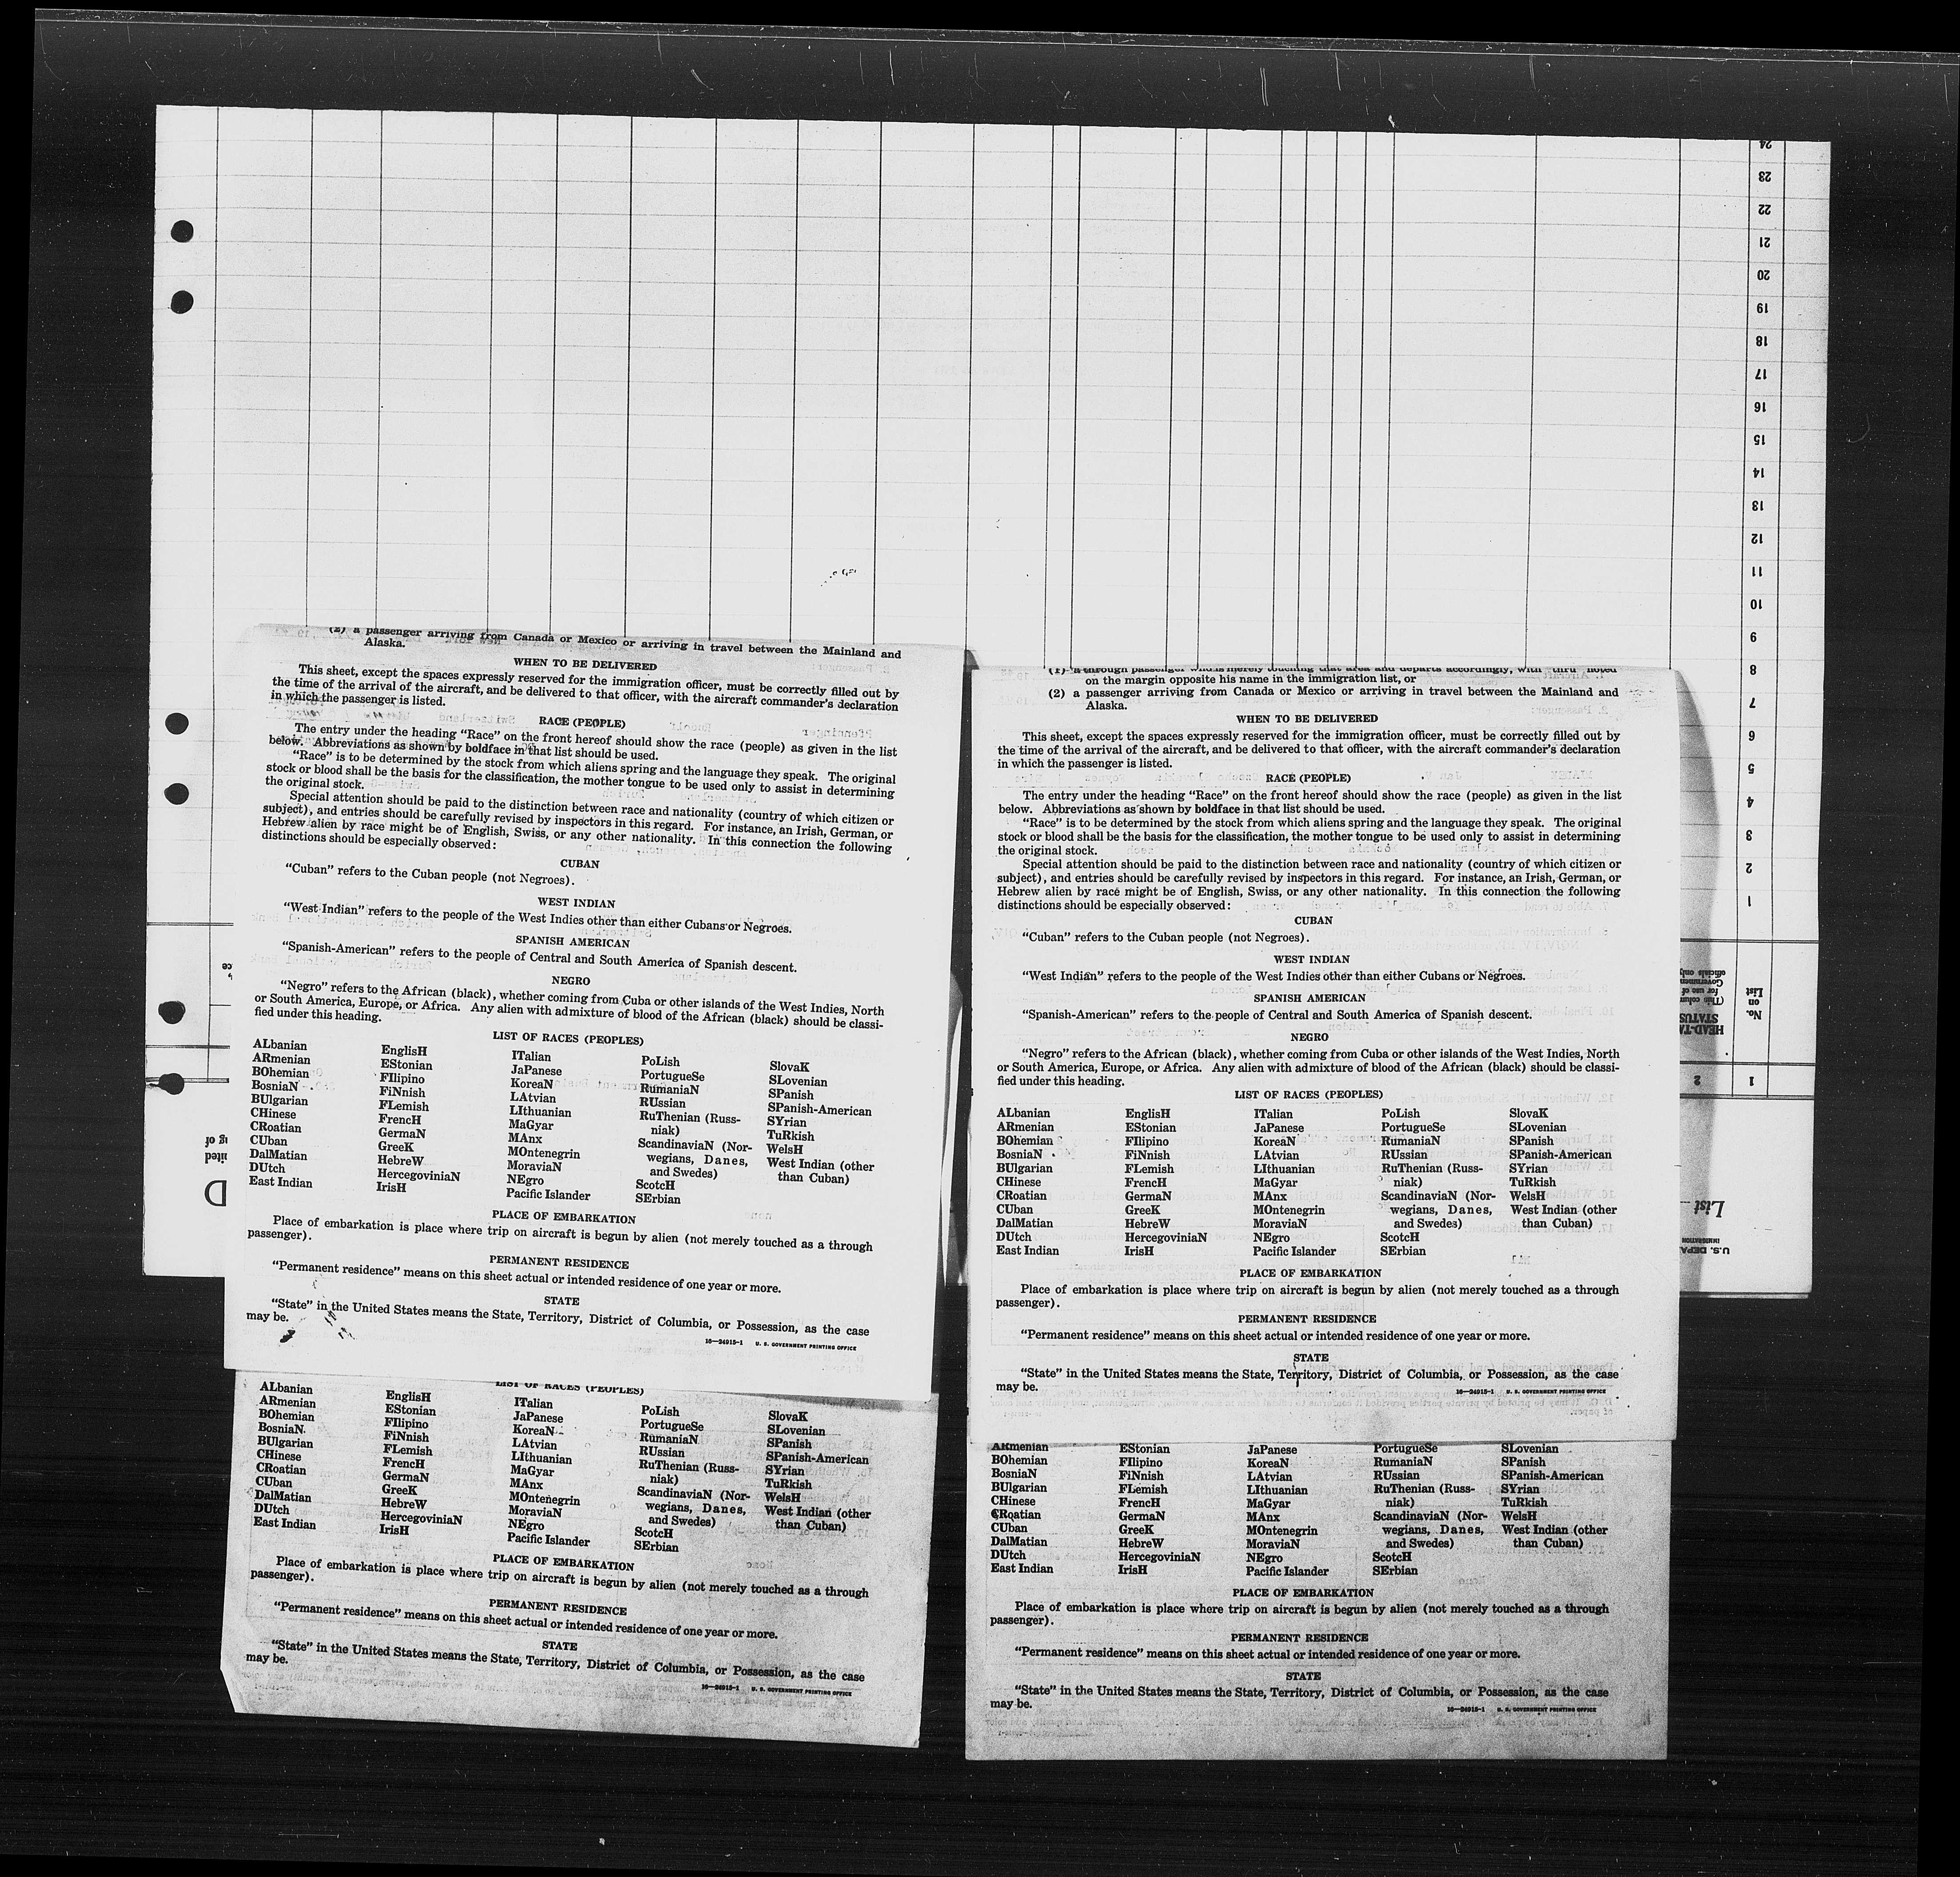 24
23
22
21
20
19
18
17
16
15
14
13
12
11
10
9
8
7
6
5
4
3
2
1
No.
on
List
HEAD-TA
STATUS
(This colum
for use of
Government
officials only
1
2
List
U.S. DEPA
IMMIGRATION
(2) a passenger arriving from Canada or Mexico or arriving in travel between the Mainland and
Alaska.
WHEN TO BE DELIVERED
This sheet, except the spaces expressly reserved for the immigration officer, must be correctly filled out by
the time of the arrival of the aircraft, and be delivered to that officer, with the aircraft commander's declaration
in which the passenger is listed.
RACE (PEOPLE)
The entry under the heading "Race" on the front hereof should show the race (people) as given in the list
below. Abbreviations as shown by boldface in that list should be used.
"Race" is to be determined by the stock from which aliens spring and the language they speak. The original
stock or blood shall be the basis for the classification, the mother tongue to be used only to assist in determining
the original stock.
Special attention should be paid to the distinction between race and nationality (country of which citizen or
subject), and entries should be carefully revised by inspectors in this regard. For instance, an Irish, German, or
Hebrew alien by race might be of English, Swiss, or any other nationality. In this connection the following
distinctions should be especially observed:
CUBAN
"Cuban" refers to the Cuban people (not Negroes).
WEST INDIAN
"West Indian" refers to the people of the West Indies other than either Cubans or Negroes.
SPANISH AMERICAN
"Spanish-American" refers to the people of Central and South America of Spanish descent.
NEGRO
"Negro" refers to the African (black), whether coming from Cuba or other islands of the West Indies, North
or South America, Europe, or Africa. Any alien with admixture of blood of the African (black) should be classi-
fied under this heading.
LIST OF RACES (PEOPLES)
ALbanian
ARmenian
BOhemian
BosniaN
BUlgarian
CHinese
CRoatian
CUban
DalMatian
DUtch
East Indian
EnglisH
EStonian
FIlipino
FiNnish
FLemish
FrencH
GermaN
GreeK
HebreW
HercegoviniaN
IrisH
ITalian
JaPanese
KoreaN
LAtvian
LIthuanian
MaGyar
MAnx
MOntenegrin
MoraviaN
NEgro
Pacific Islander
PoLish
PortugueSe
RumaniaN
RUssian
RuThenian (Russ-
niak)
ScandinaviaN (Nor-
wegians, Danes,
and Swedes)
ScotcH
SErbian
SlovaK
SLovenian
SPanish
SPanish-American
SYrian
TuRkish
WelsH
West Indian (other
than Cuban)
PLACE OF EMBARKATION
Place of embarkation is place where trip on aircraft is begun by alien (not merely touched as a through
passenger).
PERMANENT RESIDENCE
"Permanent residence" means on this sheet actual or intended residence of one year or more.
STATE
"State" in the United States means the State, Territory, District of Columbia, or Possession, as the case
may be.
16—24915-1 U. S. GOVERNMENT PRINTING OFFICE
LIST OF RACES (PEOPLES)
ALbanian
ARmenian
BOhemian
BosniaN
BUlgarian
CHinese
CRoatian
CUban
DalMatian
DUtch
East Indian
EnglisH
EStonian
FIlipino
FiNnish
FLemish
FrencH
GermaN
GreeK
HebreW
HercegoviniaN
IrisH
ITalian
JaPanese
KoreaN
LAtvian
LIthuanian
MaGyar
MAnx
MOntenegrin
MoraviaN
NEgro
Pacific Islander
PoLish
PortugueSe
RumaniaN
RUssian
RuThenian (Russ-
niak)
ScandinaviaN (Nor-
wegians, Danes,
and Swedes)
ScotcH
SErbian
SlovaK
SLovenian
SPanish
SPanish-American
SYrian
TuRkish
WelsH
West Indian (other
than Cuban)
PLACE OF EMBARKATION
Place of embarkation is place where trip on aircraft is begun by alien (not merely touched as a through
passenger).
PERMANENT RESIDENCE
"Permanent residence" means on this sheet actual or intended residence of one year or more.
STATE
"State" in the United States means the State, Territory, District of Columbia, or Possession, as the case
may be.
16—24915-1 U. S. GOVERNMENT PRINTING OFFICE
(1) a through passenger who is merely touching that area and departs accordingly, with "thru" noted
on the margin opposite his name in the immigration list, or
(2) a passenger arriving from Canada or Mexico or arriving in travel between the Mainland and
Alaska.
WHEN TO BE DELIVERED
This sheet, except the spaces expressly reserved for the immigration officer, must be correctly filled out by
the time of the arrival of the aircraft, and be delivered to that officer, with the aircraft commander's declaration
in which the passenger is listed.
RACE (PEOPLE)
The entry under the heading "Race" on the front hereof should show the race (people) as given in the list
below. Abbreviations as shown by boldface in that list should be used.
"Race" is to be determined by the stock from which aliens spring and the language they speak. The original
stock or blood shall be the basis for the classification, the mother tongue to be used only to assist in determining
the original stock.
Special attention should be paid to the distinction between race and nationality (country of which citizen or
subject), and entries should be carefully revised by inspectors in this regard. For instance, an Irish, German, or
Hebrew alien by race might be of English, Swiss, or any other nationality. In this connection the following
distinctions should be especially observed:
CUBAN
"Cuban" refers to the Cuban people (not Negroes).
WEST INDIAN
"West Indian" refers to the people of the West Indies other than either Cubans or Negroes.
SPANISH AMERICAN
"Spanish-American" refers to the people of Central and South America of Spanish descent.
NEGRO
"Negro" refers to the African (black), whether coming from Cuba or other islands of the West Indies, North
or South America, Europe, or Africa. Any alien with admixture of blood of the African (black) should be classi-
fied under this heading.
LIST OF RACES (PEOPLES)
ALbanian
ARmenian
BOhemian
BosniaN
BUlgarian
CHinese
CRoatian
CUban
DalMatian
DUtch
East Indian
EnglisH
EStonian
FIlipino
FiNnish
FLemish
FrencH
GermaN
GreeK
HebreW
HercegoviniaN
IrisH
ITalian
JaPanese
KoreaN
LAtvian
LIthuanian
MaGyar
MAnx
MOntenegrin
MoraviaN
NEgro
Pacific Islander
PoLish
PortugueSe
RumaniaN
RUssian
RuThenian (Russ-
niak)
ScandinaviaN (Nor-
wegians, Danes,
and Swedes)
ScotcH
SErbian
SlovaK
SLovenian
SPanish
SPanish-American
SYrian
TuRkish
WelsH
West Indian (other
than Cuban)
PLACE OF EMBARKATION
Place of embarkation is place where trip on aircraft is begun by alien (not merely touched as a through
passenger).
PERMANENT RESIDENCE
"Permanent residence" means on this sheet actual or intended residence of one year or more.
STATE
"State" in the United States means the State, Territory, District of Columbia, or Possession, as the case
may be.
16—24915-1 U. S. GOVERNMENT PRINTING OFFICE
ARmenian
BOhemian
BosniaN
BUlgarian
CHinese
CRoatian
CUban
DalMatian
DUtch
East Indian
EStonian
FIlipino
FiNnish
FLemish
FrencH
GermaN
GreeK
HebreW
HercegoviniaN
IrisH
JaPanese
KoreaN
LAtvian
LIthuanian
MaGyar
MAnx
MOntenegrin
MoraviaN
NEgro
Pacific Islander
PortugueSe
RumaniaN
RUssian
RuThenian (Russ-
niak)
ScandinaviaN (Nor-
wegians, Danes,
and Swedes)
ScotcH
SErbian
SLovenian
SPanish
SPanish-American
SYrian
TuRkish
WelsH
West Indian (other
than Cuban)
PLACE OF EMBARKATION
Place of embarkation is place where trip on aircraft is begun by alien (not merely touched as a through
passenger).
PERMANENT RESIDENCE
"Permanent residence" means on this sheet actual or intended residence of one year or more.
STATE
"State" in the United States means the State, Territory, District of Columbia, or Possession, as the case
may be.
16—24915-1 U. S. GOVERNMENT PRINTING OFFICE